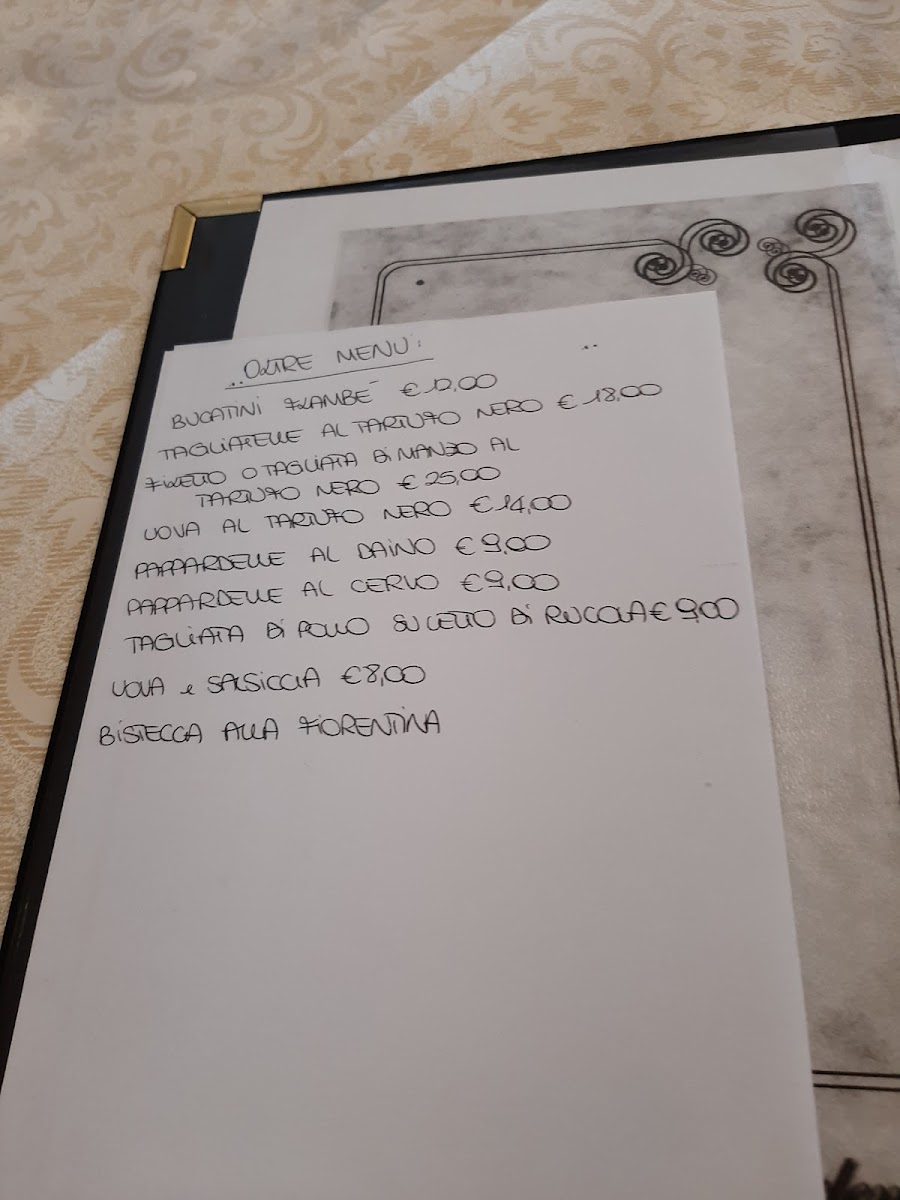 ..OLTRE MENU':
..
BUCATINI FLAMBÉ €12,00
TAGLIATELLE AL TARTUFO NERO €18,00
FILETTO O TAGLIATA DI MANZO AL
TARTUFO NERO €25,00
UOVA AL TARTUFO NERO €14,00
PAPPARDELLE AL DAINO €9,00
PAPPARDELLE AL CERVO €9,00
TAGLIATA DI POLLO SU LETTO DI RUCOLA €9,00
UOVA e SALSICCIA €8,00
BISTECCA ALLA FIORENTINA